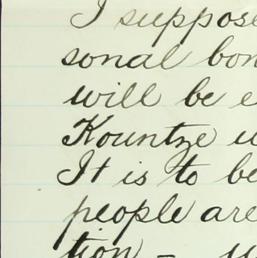 I suppose
sonal bon
will be e
Kountze w
It is to be
people are
tion - w